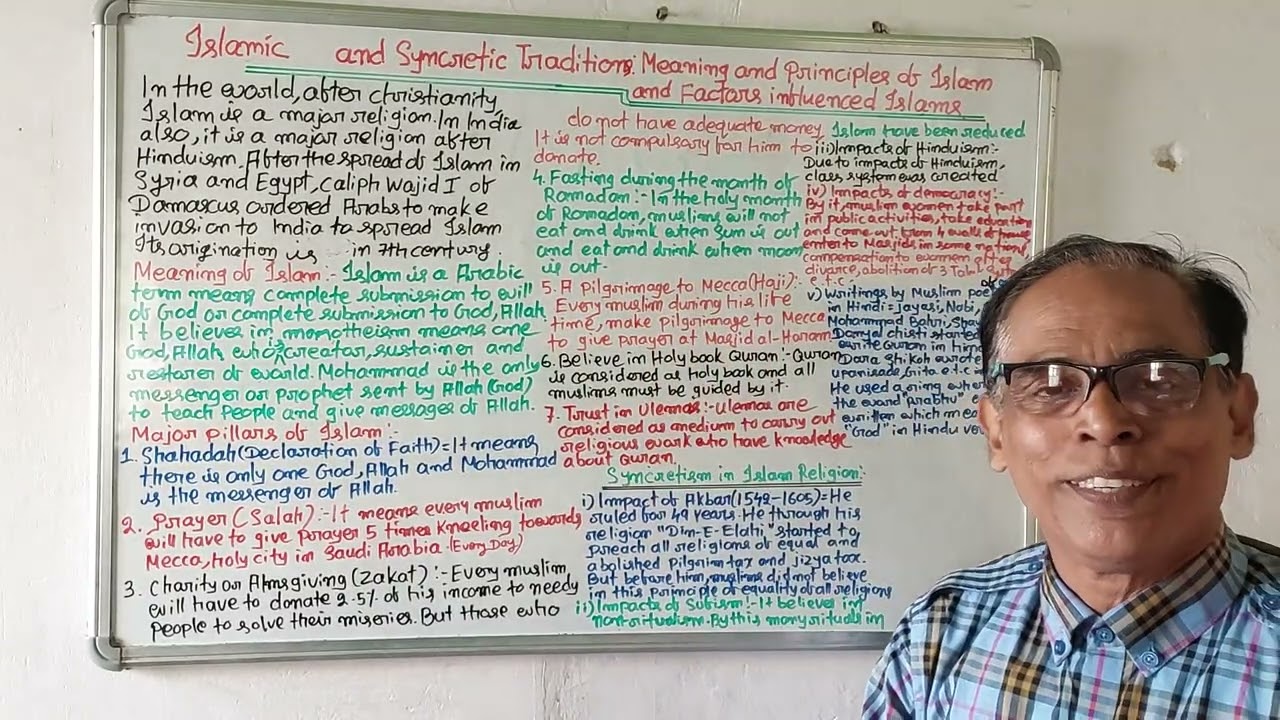 Islamic and Syncretic Traditions: Meaning and Principles of Islam
and Factors influenced Islams
In the world, after christianity,
Islam is a major religion. In India
also, it is a major religion after
Hinduism. After the spread of Islam in
Syria and Egypt, caliph Wajid I of
Damascus ordered Arabs to make
invasion to India to spread Islam
Its origination is in 7th century.
Meaning of Islam:- Islam is a Arabic
term means complete submission to will
of God or complete submission to God, Allah.
It believes in monotheism means one
God, Allah who is creator, sustainer and
restorer of world. Mohammad is the only
messenger or prophet sent by Allah (God)
to teach people and give messages of Allah.
Major pillars of Islam:-
1. Shahadah (Declaration of Faith)= It means
there is only one God, Allah and Mohammad
is the messenger of Allah.
2. Prayer (Salah):- It means every muslim
will have to give prayer 5 times kneeling towards
Mecca, holy city in Saudi Arabia. (Every Day)
3. Charity or Almsgiving (Zakat):- Every muslim
will have to donate 2.5% of his income to needy
people to solve their miseries. But those who
do not have adequate money
It is not compulsary for him to
donate.
4. Fasting during the month of
Ramadan:- In the holy month
of Ramadan, muslims will not
eat and drink when sun is out
and eat and drink when moon
is out.
5. A Pilgrimage to Mecca (Hajj):-
Every muslim during his life
time, make pilgrimage to Mecca
to give prayer at Masjid al-Haram.
6. Believe in Holy book Quran:- Quran
is considered as holy book and all
muslims must be guided by it.
7. Trust in Ulemas:- ulemas are
considered as medium to carry out
religious work who have knowledge
about Quran.
Syncretism in Islam Religion:
i) Impact of Akbar (1542-1605)= He
ruled for 49 years. He through his
religion "Din-E-Elahi" started to
preach all religions of equal and
abolished pilgrim tax and jizya tax.
But before him, muslims did not believe
in this principle of equality of all religions
ii) Impacts of Sufism:- It believes in
non-ritualism. By this many rituals in
Islam have been reduced
iii) Impacts of Hinduism:-
Due to impacts of Hinduism,
class system was created
iv) Impacts of democracy:-
By it, muslim women take part
in public activities, take
and come out from 4 walls of house
enter to Masjids in some nations
compensation to women after
divorce, abolition of 3
e.t.c.
v) Writings by Muslim
in Hindi = Jayasi, Nobi,
Mohammad Bahri,
chisti started
write Quran in
Dara Shikoh wrote
upanisads, Gita e.t.c
He used a ring where
the word "prabhu"
written which
"God" in Hindu